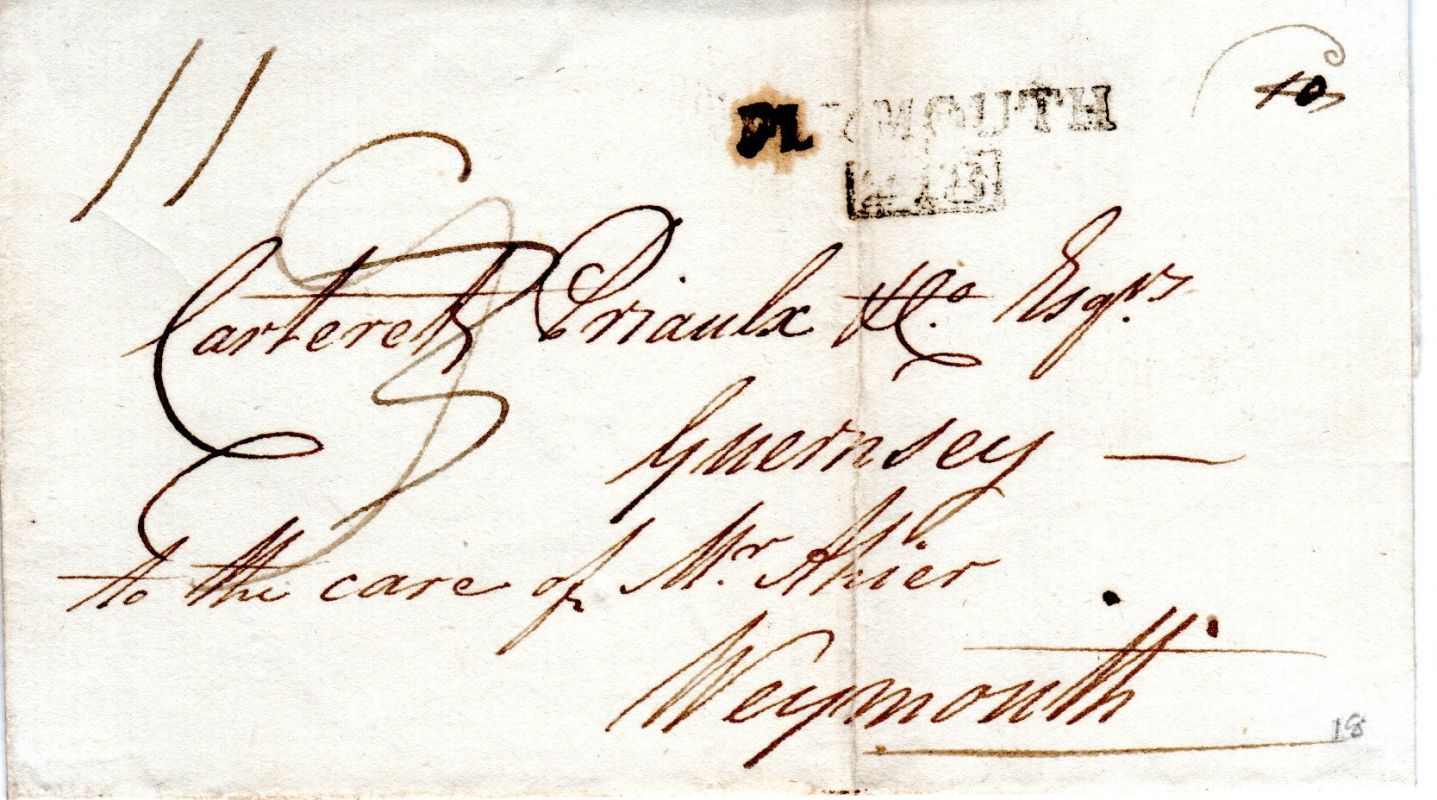 11
PLYMOUTH
218
Carteret Priaulx & Co. Esqrs
Guernsey —
to the care of Mr. Ahier
Weymouth
18